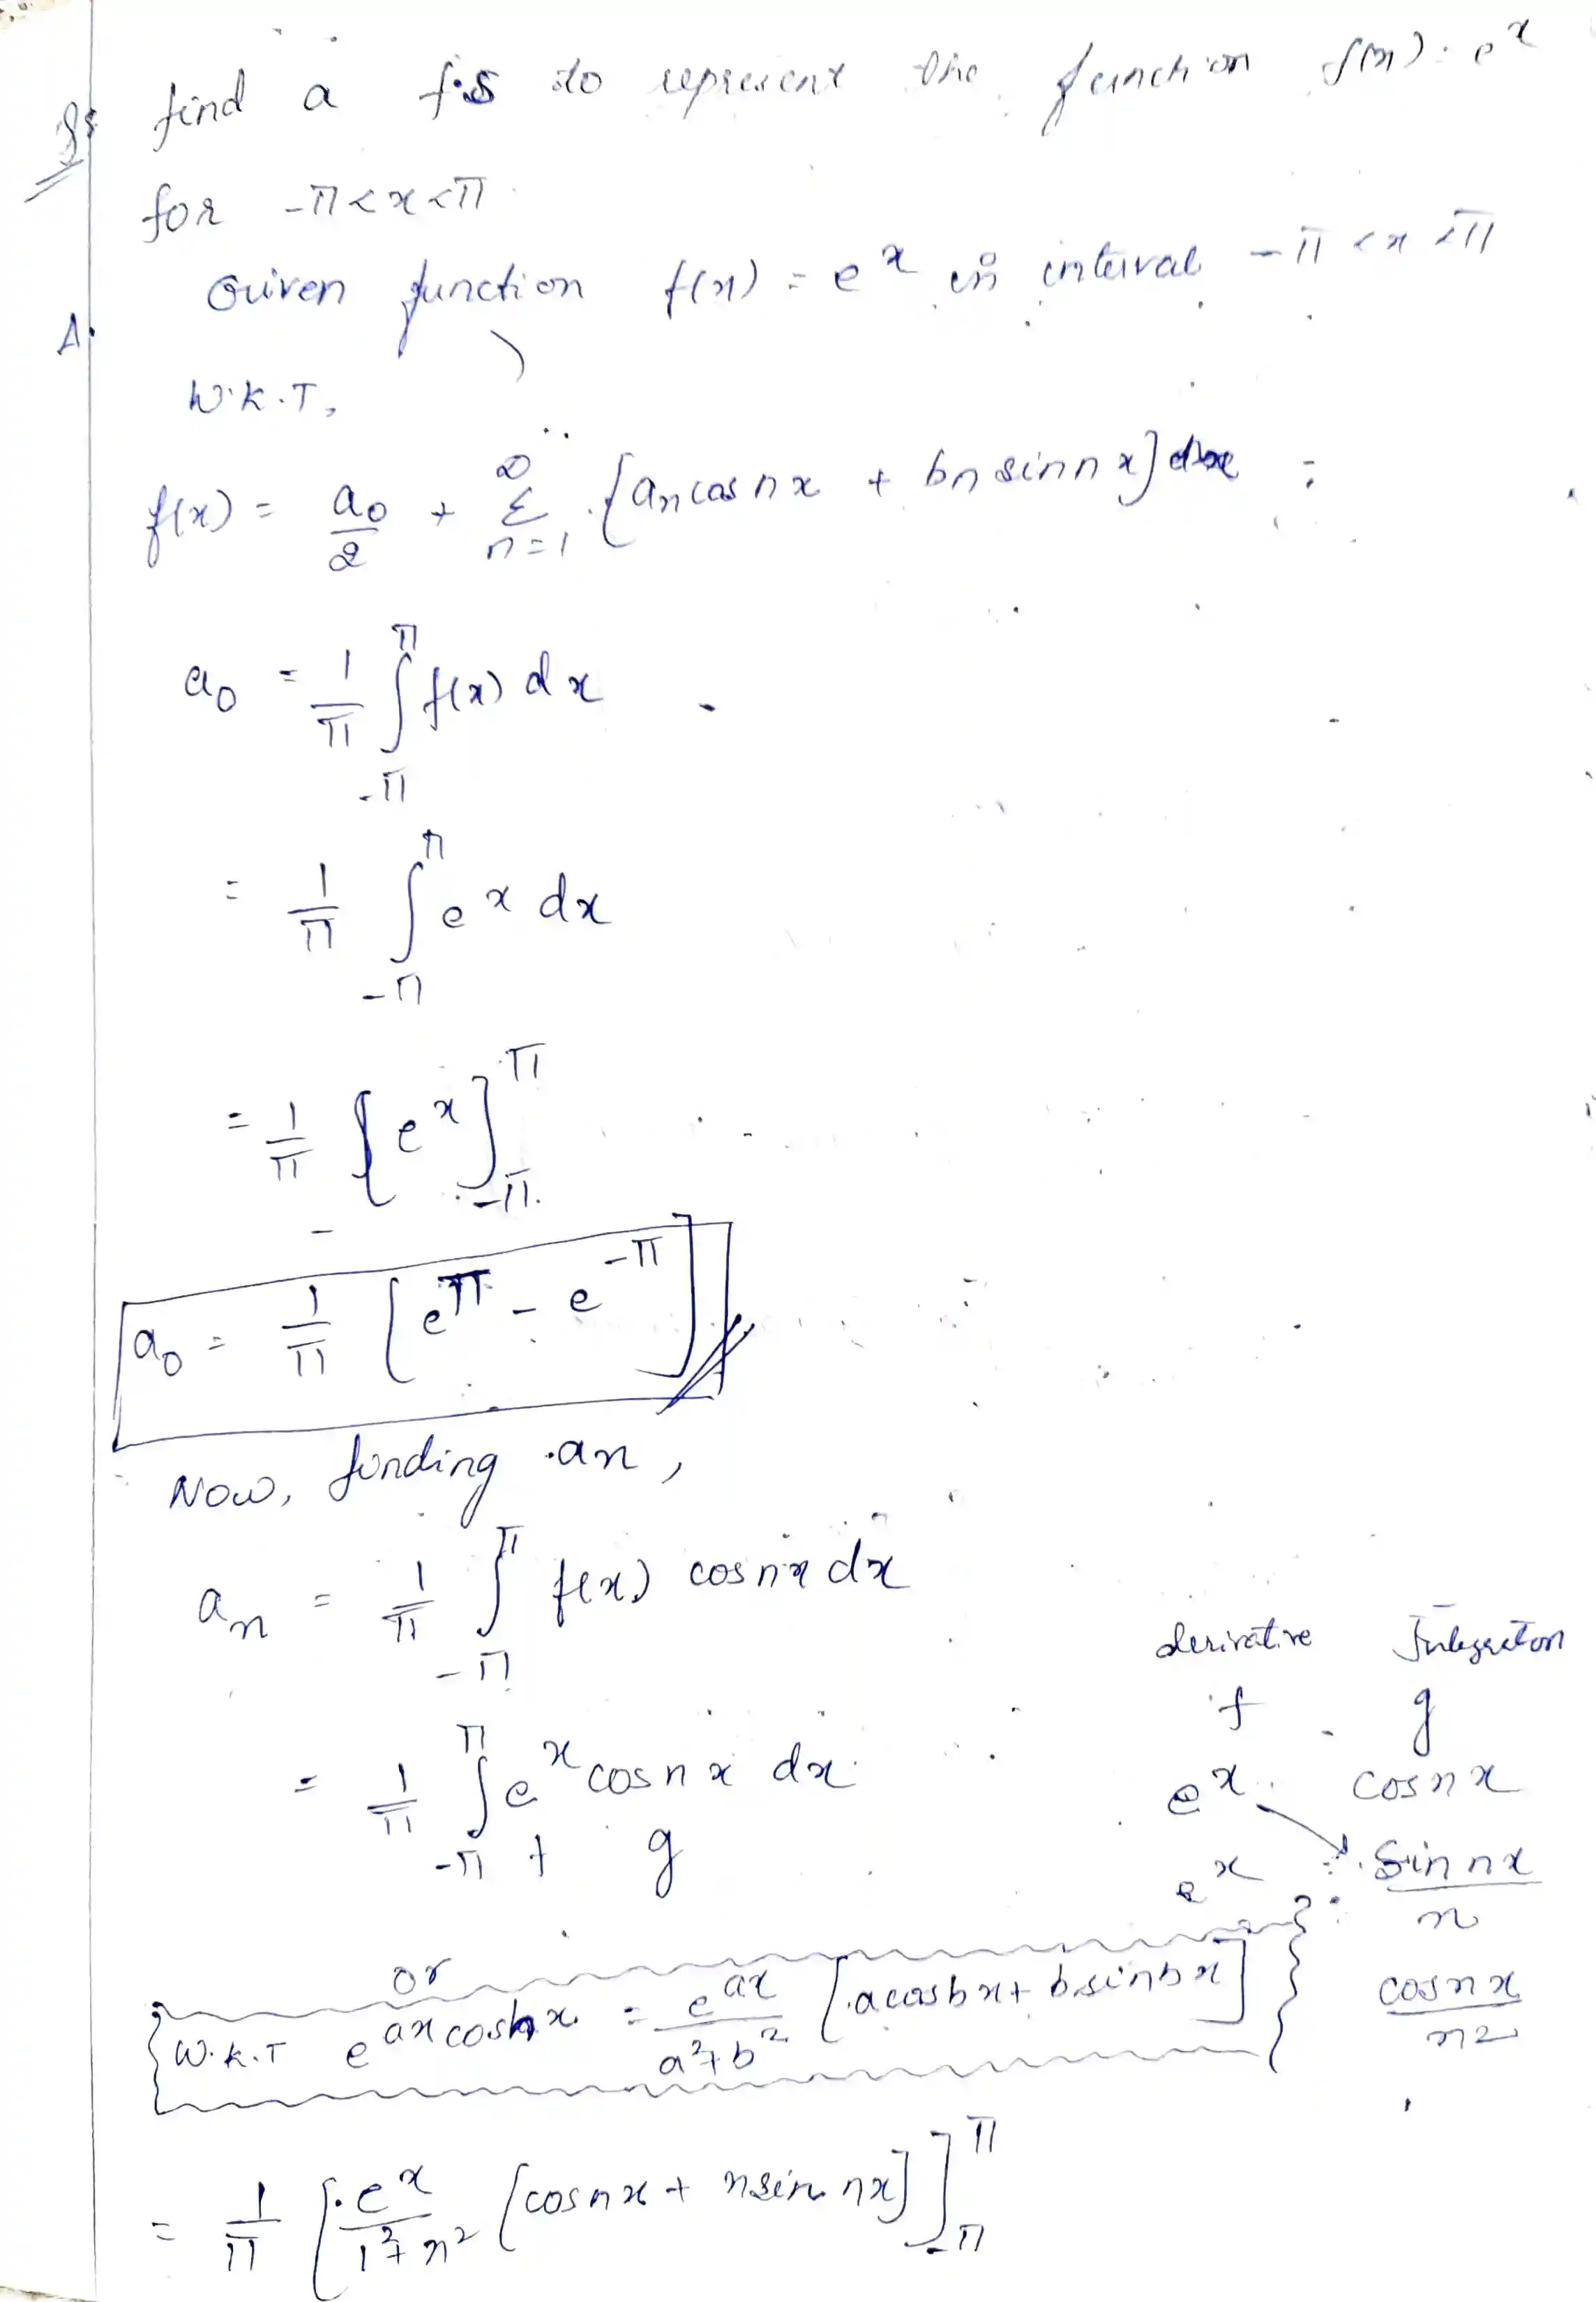 find a f.s to represent the function f(x) = e^x
for -π < x < π
A. Given function f(x) = e^x in interval -π < x < π
W.K.T,
f(x) = a0/2 + Σ_{n=1}^{∞} [an cos nx + bn sin nx]
a0 = 1/π ∫_{-π}^{π} f(x) dx
= 1/π ∫_{-π}^{π} e^x dx
= 1/π [e^x]_{-π}^{π}
a0 = 1/π [e^π - e^-π]
Now, finding an,
an = 1/π ∫_{-π}^{π} f(x) cos nx dx
= 1/π ∫_{-π}^{π} e^x cos nx dx
f g
derivative Integration
f g
e^x cos nx
e^x sin nx/n
cos nx/n2
or
W.K.T e^ax cos bx = e^ax/(a^2+b^2) [a cos bx + b sin bx]
= 1/π [e^x/(1^2+n^2) [cos nx + n sin nx]]_{-π}^{π}